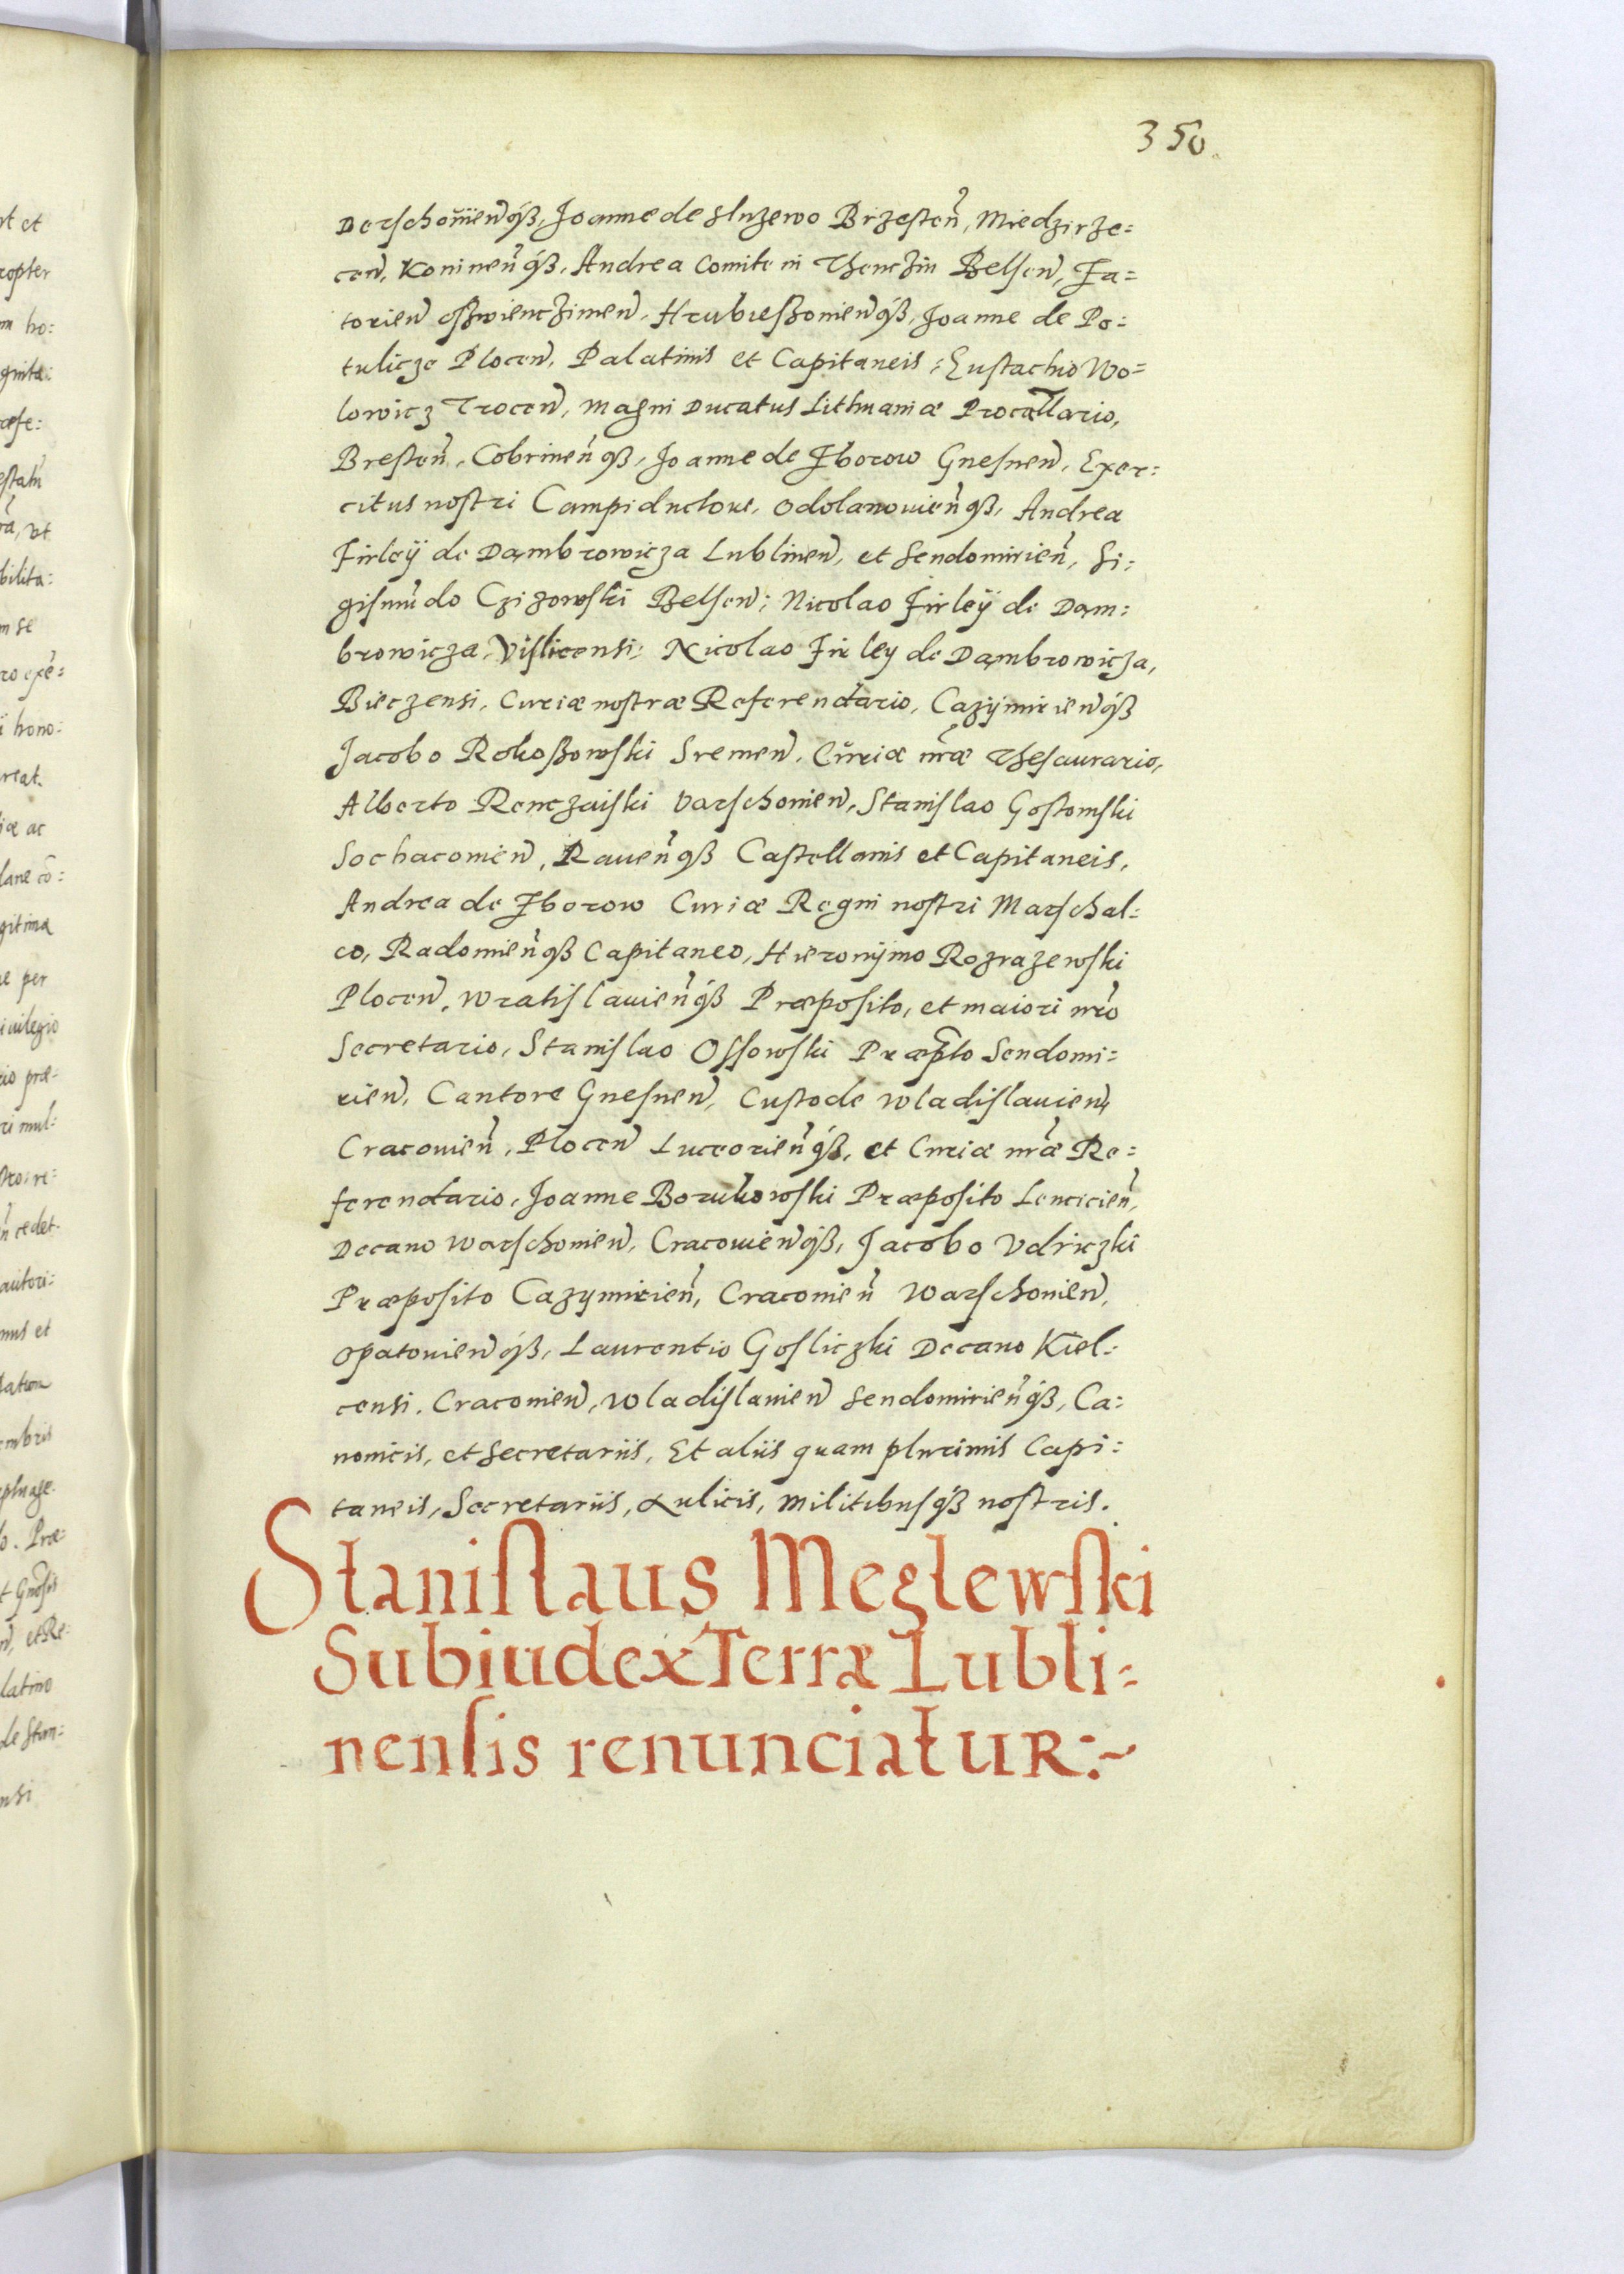 350.
Derschouieńqß, Joanne de Sluzewo Brzesten̄, Miedzirze=
cen̄, Koninen̄qß, Andrea Comite in Thenczin Belsen̄, Za=
torien̄ Oswienczimen̄, Hrubiessouien̄qß, Joanne de Po=
tulicze Plocen̄, Palatinis et Capitaneis; Eustachio Wo=
lowicz Trocen̄, Magni Ducatus Lithuaniæ Procallario,
Bresten̄, Cobrinen̄qß, Joanne de Zborow Gnesnen̄, Exer=
citus nostri Campiductore, Odolanouien̄qß, Andrea
Firleÿ de Dambrowicza Lublinen̄, et Sendomirien̄, Si=
gismūdo Czizowski Belsen̄; Nicolao Firleÿ de Dam=
browicza, Vislicensi; Nicolao Firley de Dambrowicza,
Bieczensi, Curiæ nostræ Referendario, Cazÿmirien̄qß
Jacobo Rokoßowski Sremen̄, Curiæ nr̄æ Thesaurario,
Alberto Renczaiski Varschouien̄, Stanislao Gostomski
Sochacouien̄, Rauen̄qß Castellanis et Capitaneis,
Andrea de Zborow Curiæ Regni nostri Marschal=
co, Radomien̄qß Capitaneo, Hieronÿmo Rozrazewski
Plocen̄, Wratislauien̄qß Præposito, et maiori nr̄o
Secretario, Stanislao Ossowski Præpt̄o Sendomi=
rien̄, Cantore Gnesnen̄, Custode Wladislauien̄,
Cracouien̄, Plocen̄ Luceorien̄qß, et Curiæ nr̄æ Re=
ferendario, Joanne Borukowski Præposito Lencicien̄,
Decano Warschouien̄, Cracouien̄qß, Jacobo Vdriczki
Præposito Cazymirien̄, Cracouien̄ Warschouien̄,
Opatouien̄qß, Laurentio Gosliczki Decano Kiel=
censi, Cracouien̄, Wladislauien̄ Sendomirien̄qß, Ca=
nonicis, et Secretariis, Et aliis quam plurimis Capi=
taneis, Secretariis, Aulicis, Militibusqß nostris.
Stanislaus Mezlewski
Subiudex Terræ Lubli=
nensis renunciatur:~